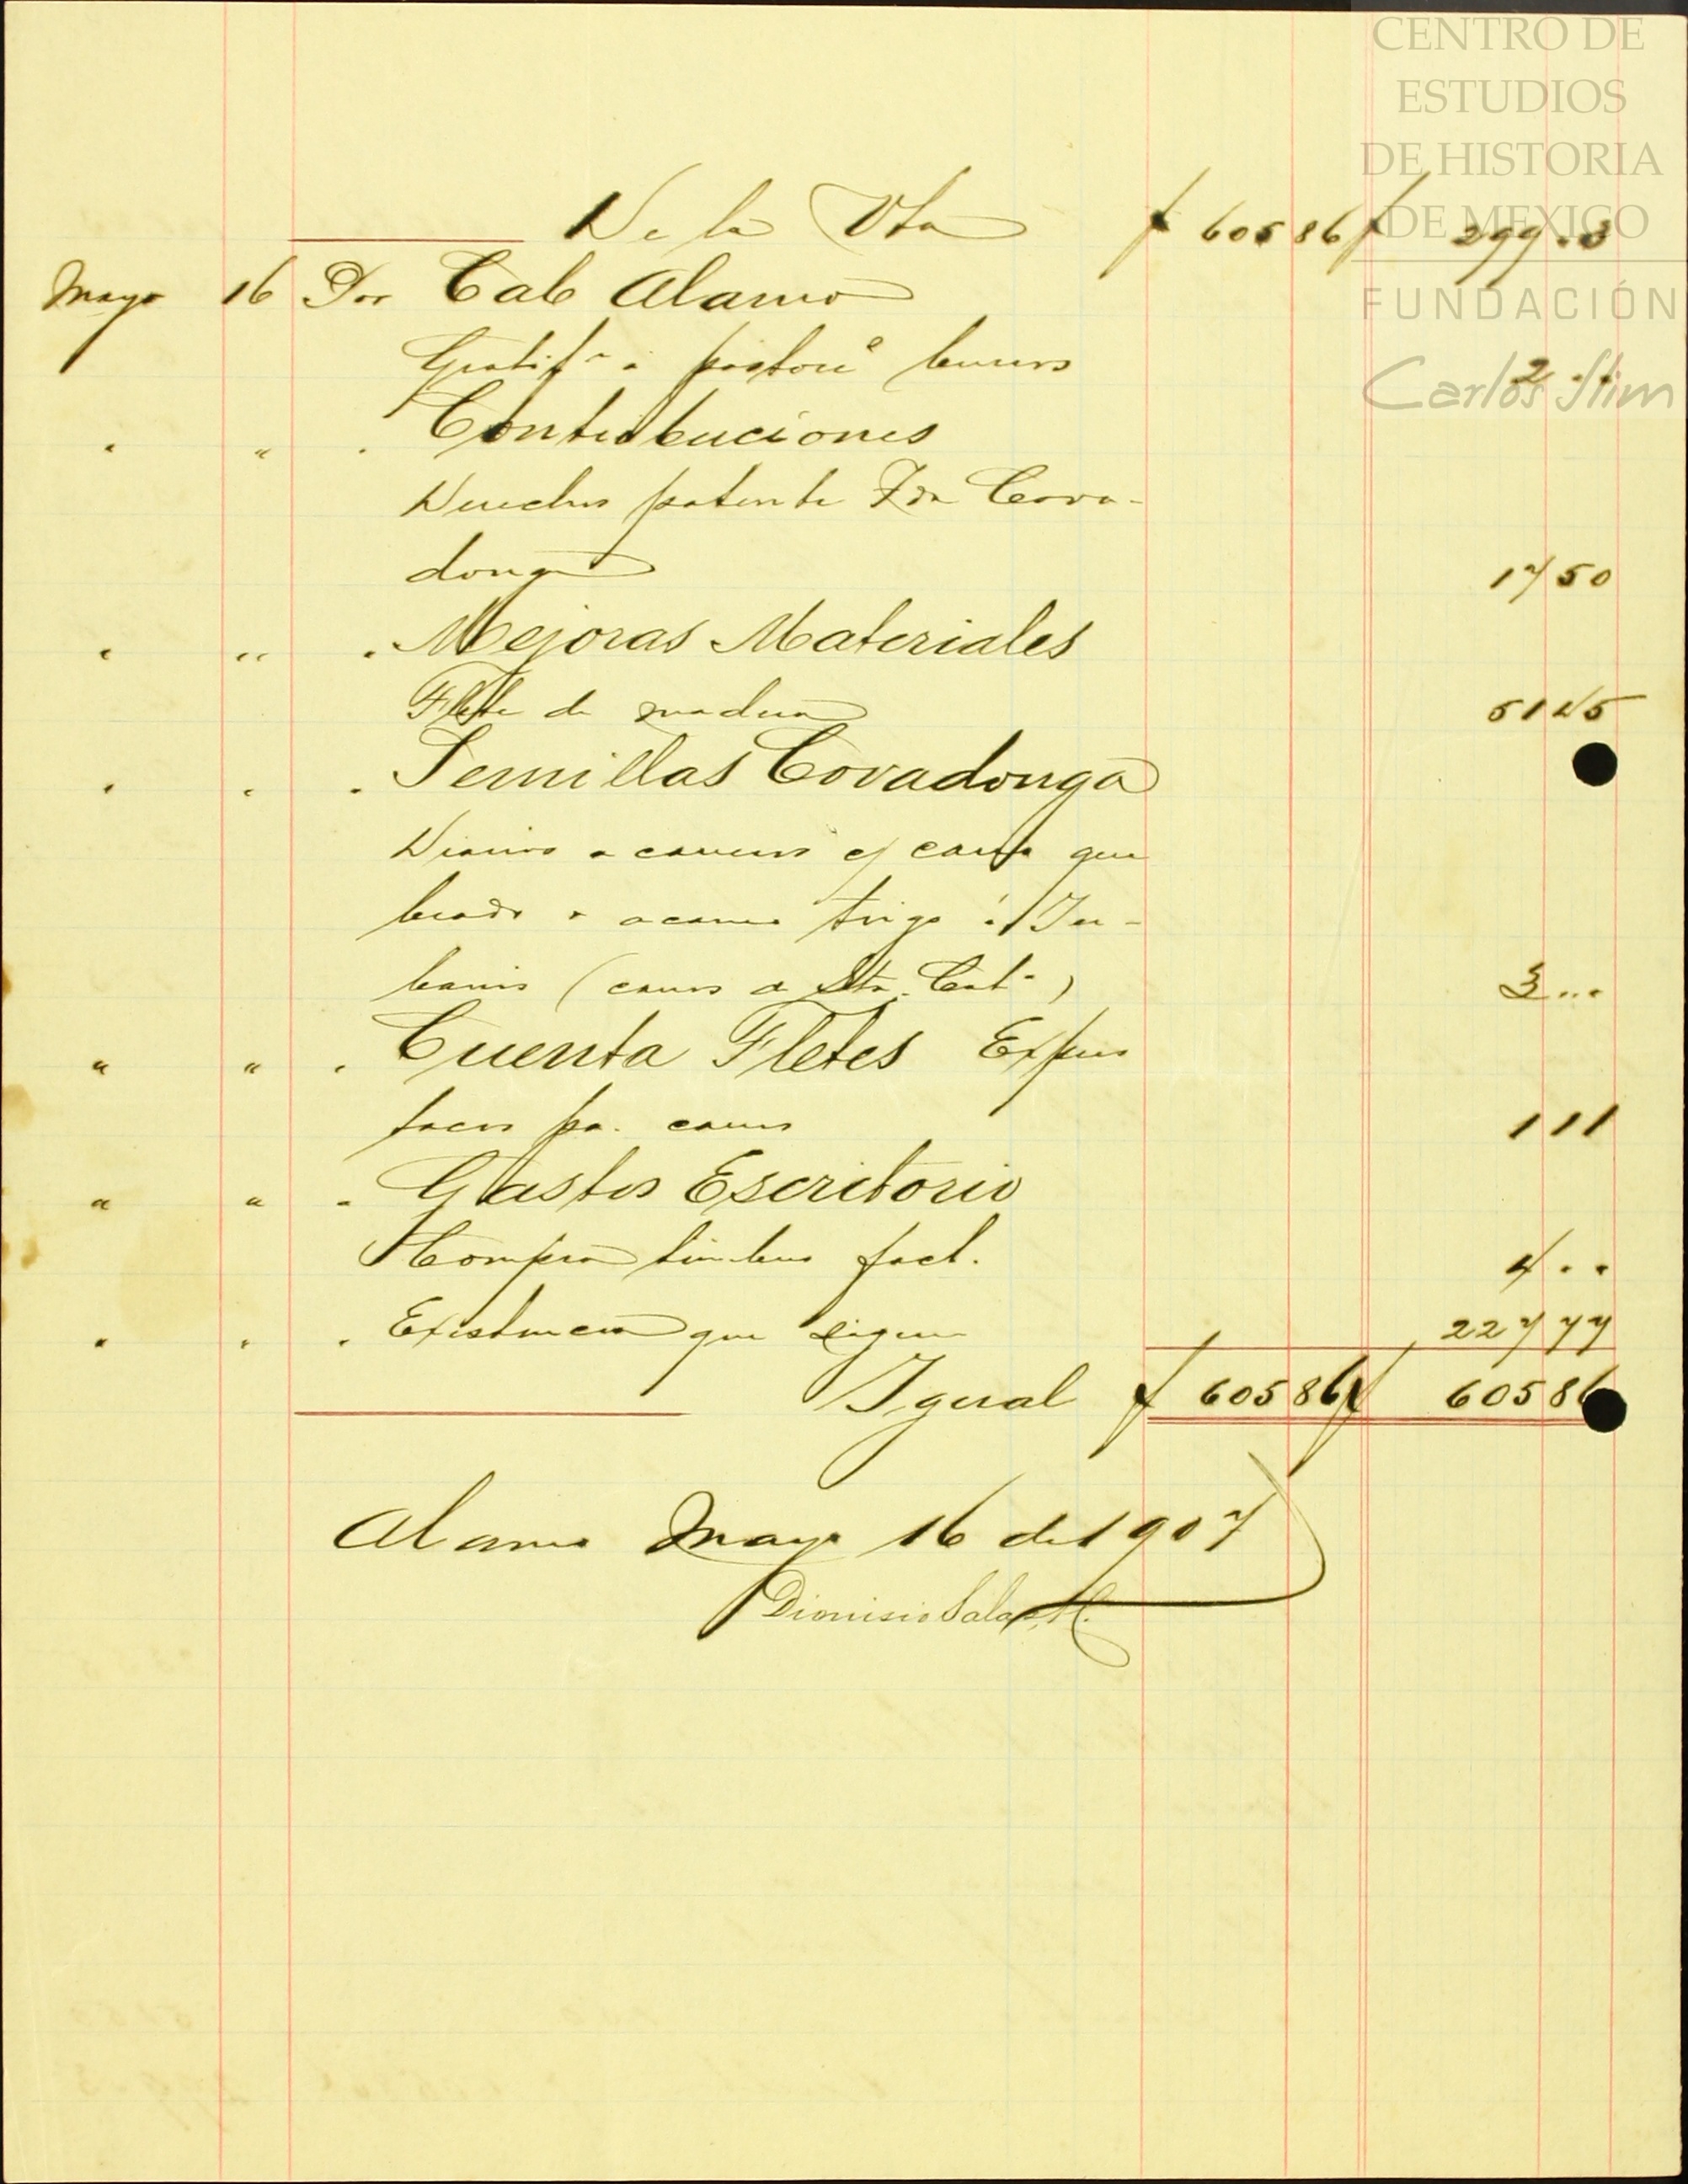 CENTRO DE
ESTUDIOS
DE HISTORIA
DE MEXICO
FUNDACIÓN
Carlos Slim
De la Vta $ 605 86 $ 299 . 3
Mayo 16 Por Cab Alamo
Gratif a burros 2 . .
" " " Contribuciones
Derechos patente Fca Cova-
donga 17 50
" " " Mejoras Materiales
Flete de madera 51 45
" " " Semillas Covadonga
Diarios a carreros y carro que
brado a acarreo trigo á
(carros a Sta. Cat.) 3 . .
" " " Cuenta Fletes
focos pa. carros 1 11
" " " Gastos Escritorio
Compra timbres fact. 4 . .
" " " Existencia que sigue 227 77
Igual $ 605 86 $ 605 86
Alamo Mayo 16 de 1907
Dionisio Salas